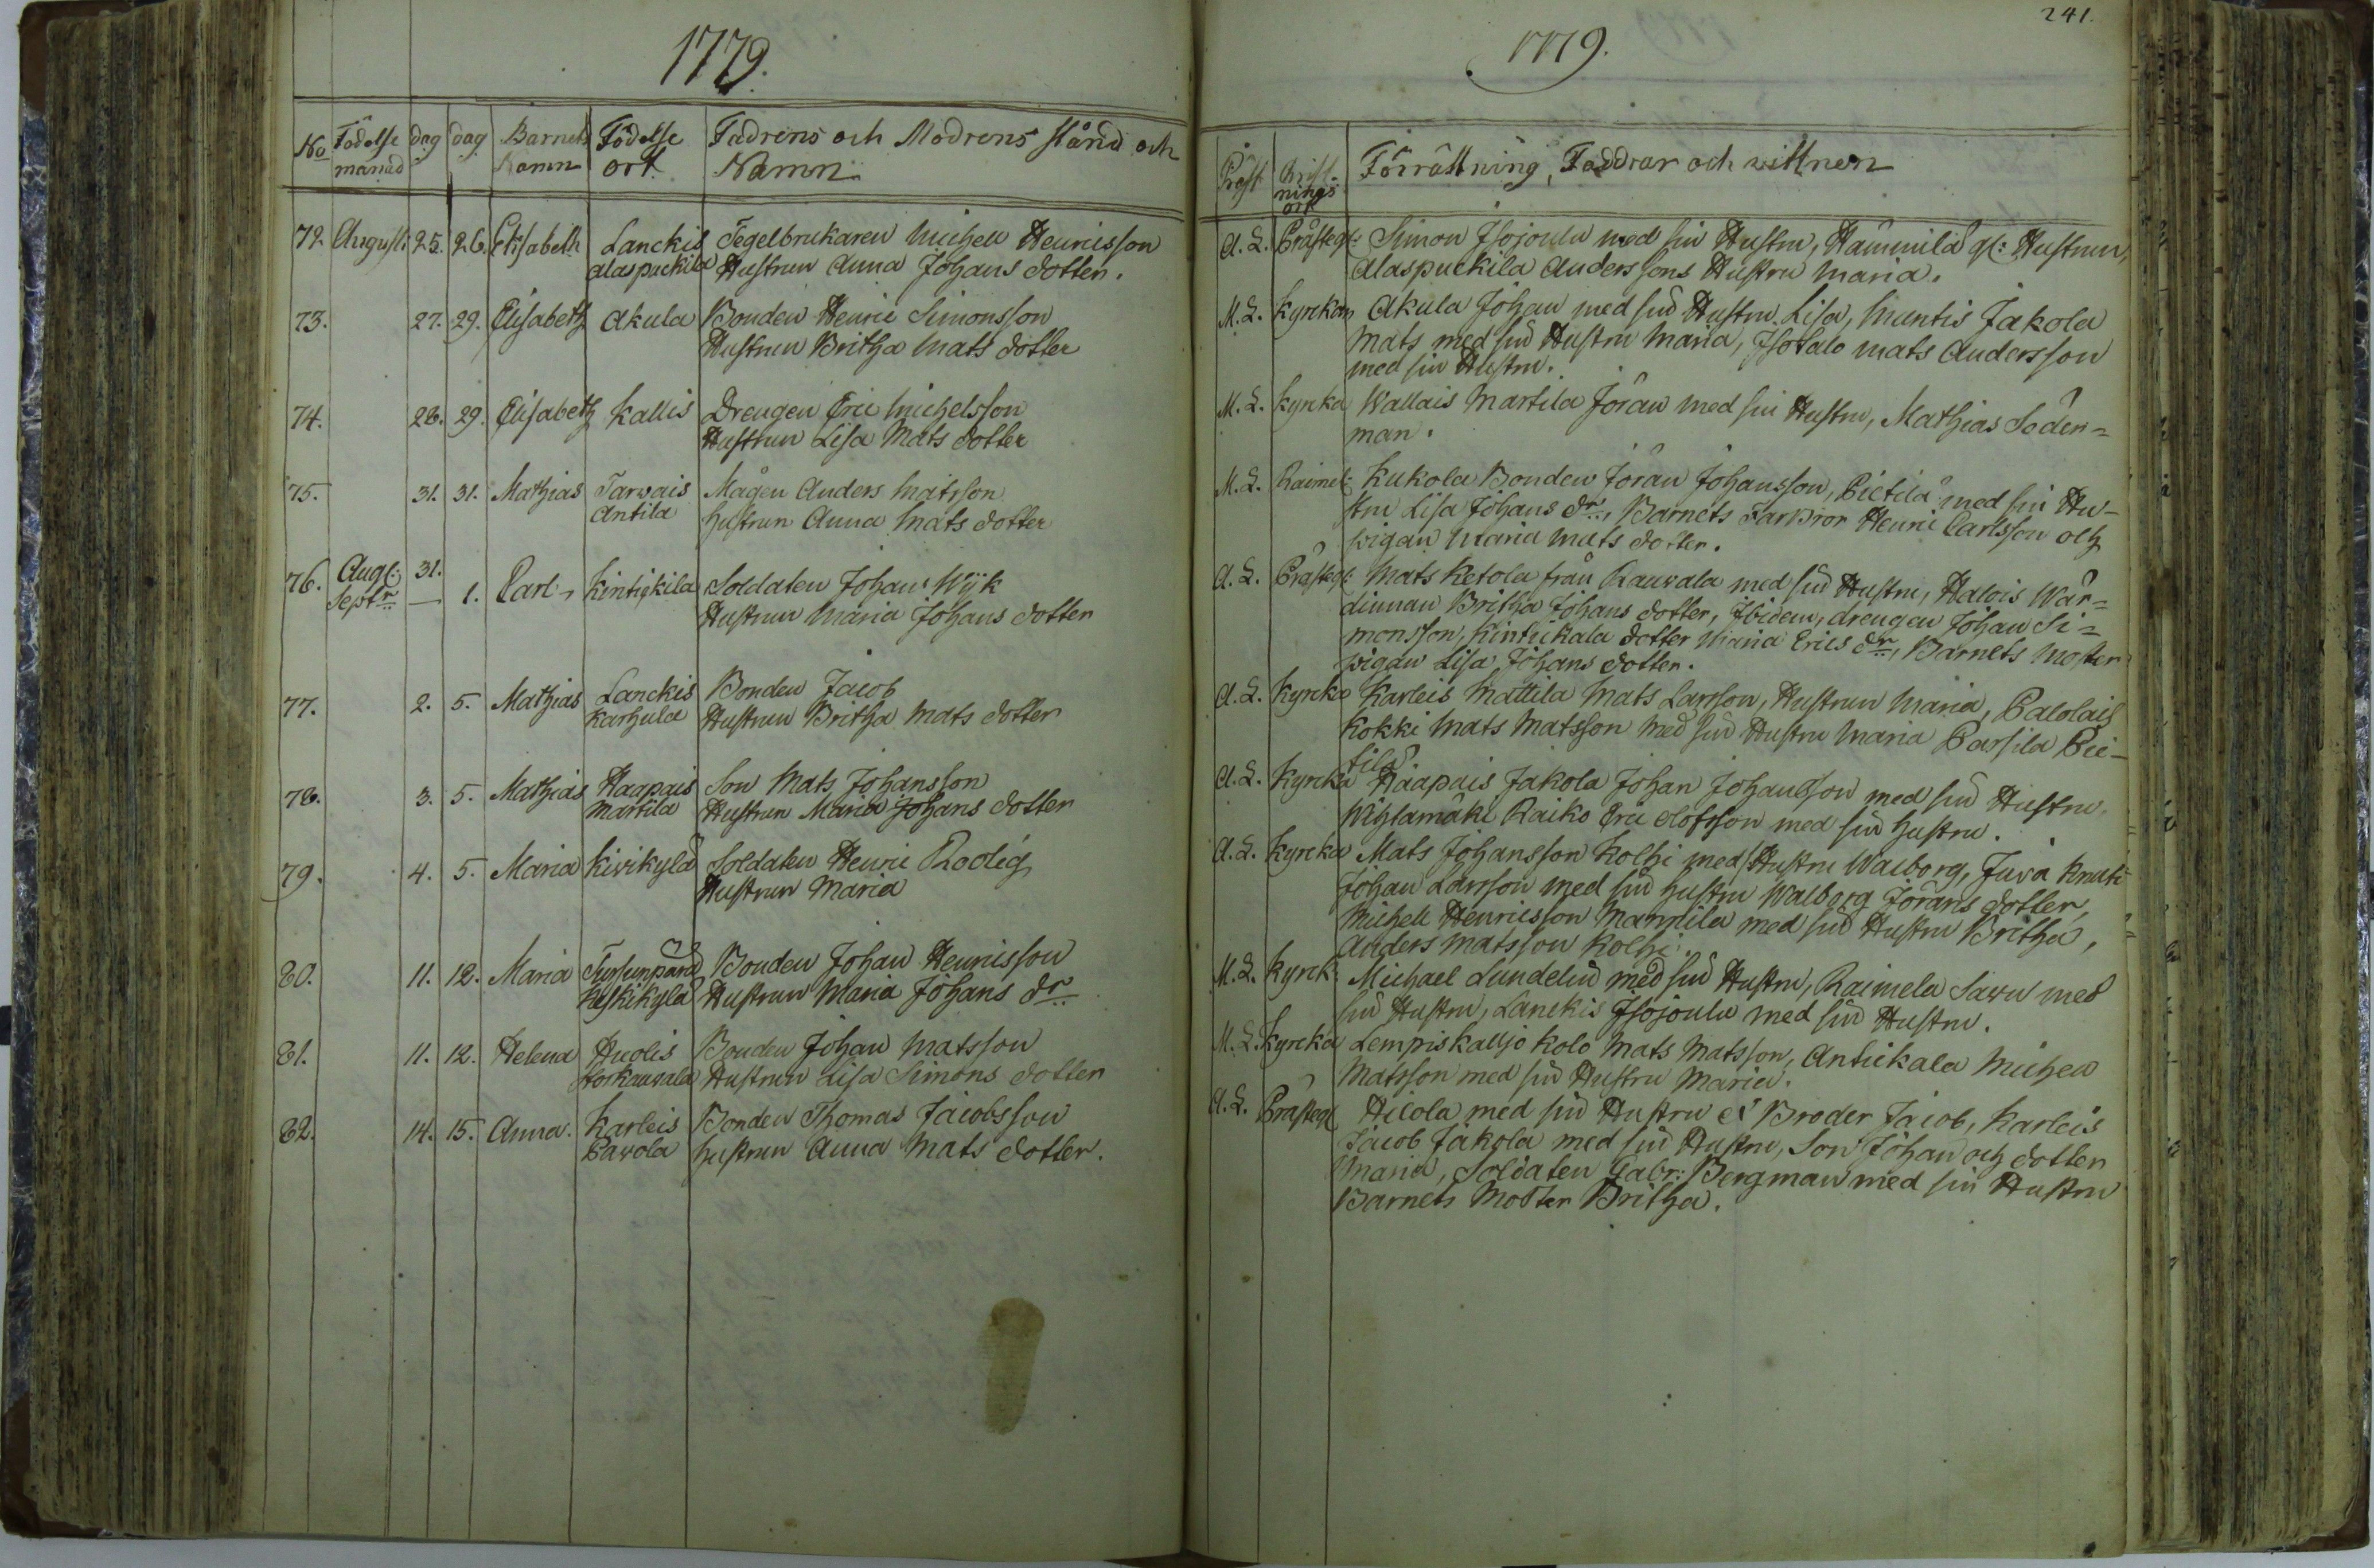 1779.
No Födelse månad dag dag Barnets Namn Födelse ort Fadrens och Modrens stånd och Namn
72 Augusti 25. 26. Elisabeth Lanckis Tegelbrukaren Michell Henricsson
alaspuckila Hustrun Anna Johans dotter.
73. 27. 29. Elisabeth Akula Bonden Henric Simonsson
Hustrun Britha Mats dotter
74. 28. 29. Elisabeth Kallis Drengen Eric Michelsson
Hustrun Lisa Mats dotter
75. 31. 31. Mathias Tarvais Mågen Anders Matsson
Antila hustrun Anna Mats dotter
76. Aug: 31. Carl Kintikkila Soldaten Johan Wijk
Septr — 1. Hustrun Maria Johans dotter
77. 2. 5. Mathias Lanckis Bonden Jacob
Karhula Hustrun Britha Mats dotter
78. 3. 5. Mathias Haapais Son Mats Johansson
Martila Hustrun Maria Johans dotter
79. 4. 5. Maria Kivikylä Soldaten Henric Rodig
Hustrun Maria
80. 11. 12. Maria Bonden Johan Henricsson
Keskikylä Hustrun Maria Johans dr
81. 11. 12. Helena Huolis Bonden Johan Matsson
Storkauvala Hustrun Lisa Simons dotter
82. 14. 15. Anna. Karleis Bonden Thomas Jacobsson
Pavola hustrun Anna Mats dotter.
241.
1779.
Präst Christnings ort Förrättning, Faddrar och wittnen
A. L. Prästeg: Simon Isojoulu med sin Hustru, Hämmilä gl: Hustrun,
Alaspuckila Anderssons Hustru Maria.
M. L. Kyrckan Akula Johan med sin Hustru Lisa, Muntis Jakola
Mats med sin Hustru Maria, Isotalo Mats Andersson
med sin Hustru.
M. L. Kyrcka Wallais Martila Jöran med sin Hustru, Mathias Söder=
man.
M. L. Raimel: Kukola Bonden Jöran Johansson, Pietilä med sin Hu-
stru Lisa Johans dr, Barnets Farbror Henric Carlsson och
pigan Maria Mats dotter.
A. L. Prästeg: Mats Ketola från Rauvala med sin Hustru, Halois Wär=
dinnan Britha Johans dotter, Ibidem, drengen Johan Si=
monsson, Kintikala dotter Maria Erics dr, Barnets Moster
pigan Lisa Johans dotter.
A. L. Kyrcka Karleis Mattila Mats Larsson, Hustrun Maria, Palolais
Kokki Mats Matsson med sin Hustru Maria Passila Pie-
tilä
A. L. Kyrcka Haapais Jakola Johan Johansson med sin Hustru,
Wihlamäki Raiko Eric Olofsson med sin hustru.
A. L. Kyrcka Mats Johansson Kolhi med Hustru Walborg, Juva Knuti
Johan Larsson med sin hustru Walborg Jörans dotter,
Michell Henricsson Marttila med sin Hustru Britha,
Anders Matsson Kolhi.
M. L. Kyrck: Michael Lundelin med sin Hustru, Raimela Savu med
sin Hustru, Lanckis Isojoulu med sin Hustru.
M. L. Kyrcka Lempis Kalljo Kolo Mats Matsson, Antikala Michel
Matsson med sin Hustru Maria.
A. L. Prästeg: Hilola med sin Hustru & Broder Jacob, Karleis
Jacob Jakola med sin Hustru, Son Johan och dotter
Maria, Soldaten Gabr: Bergman med sin Hustru
Barnets Moster Britha.